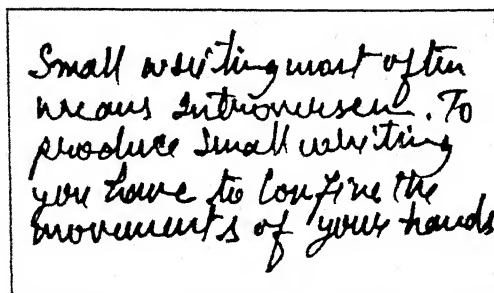 Small writing most often
means Introversen. To
produce Small writing
you have to Confine the
movements of your hands